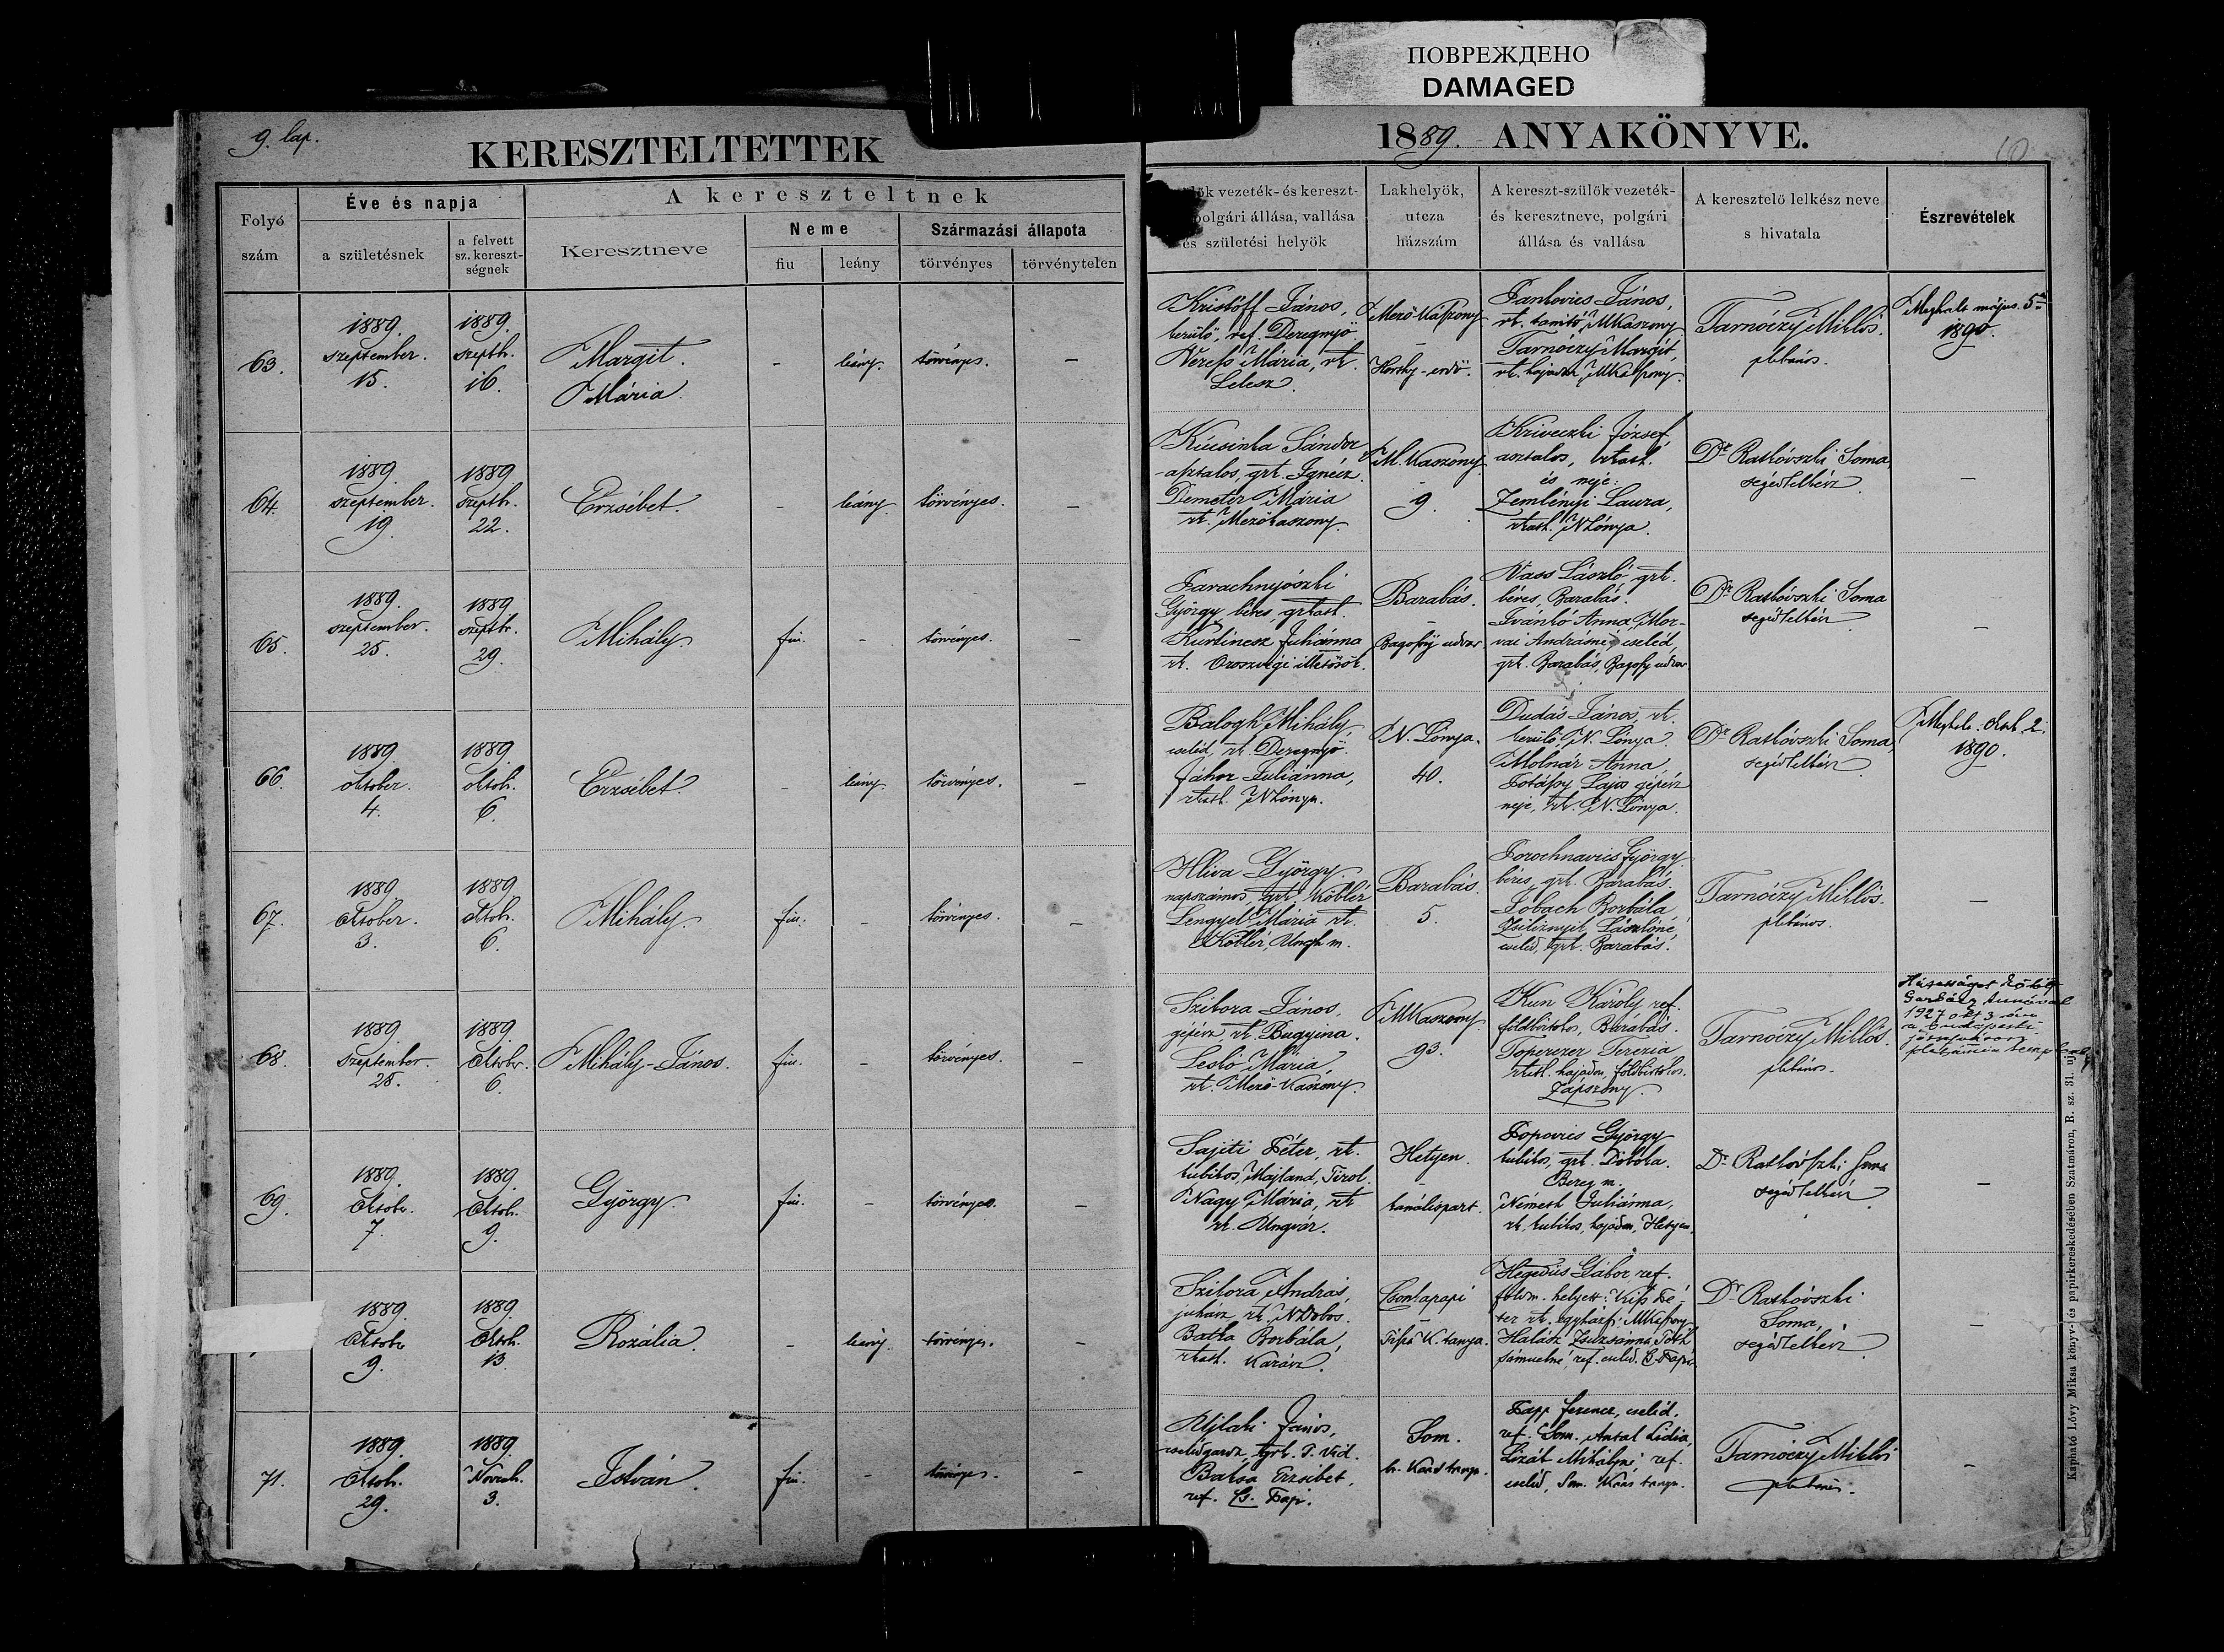 ПОВРЕЖДЕНО
DAMAGED
9. lap.
KERESZTELTETTEK
1889. ANYAKÖNYVE.
10
Folyó
szám
Éve és napja
a születésnek
a felvett
sz. kereszt-
ségnek
A kereszteltnek
Keresztneve
Neme
fiu
leány
Származási állapota
törvényes
törvénytelen
lők vezeték- és kereszt-
polgári állása, vallása
és születési helyök
Lakhelyök,
utcza
házszám
A kereszt-szülők vezeték-
és keresztneve, polgári
állása és vallása
A keresztelő lelkész neve
s hivatala
Észrevételek
63.
1889.
szeptember.
15.
1889.
szeptb.
16.
Margit.
Mária.
-
leány.
törvényes.
-
Kristóff János,
kerülő, ref. Deregnyő
Veress Mária, rt.
Lelesz.
Mező-Kászony
Horthy-erdő.
Jankovics János,
rt. tanító, MKaszony
Tarnóczy Margit,
rt. hajadon MKászony.
Tarnóczy Miklós.
plébános.
Meghalt május 5én
1890.
64.
1889
szeptember.
19.
1889
szeptb.
22.
Erzsébet.
-
leány
törvényes.
-
Kucsinka Sándor
asztalos, grt. Ignécz.
Demeter Mária
rt. Mezőkaszony.
M. Kaszony
-
9.
Kriveczki József,
asztalos, rtkath.
és neje:
Zemlényi Laura,
rkath. NLónya.
Dr Raskóvszki Soma
segédlelkész
-
65.
1889.
szeptember.
25.
1889
szeptb.
29.
Mihály.
fiu.
-
törvényes.
-
György béres, grkath.
Kurtinesz Julianna
rt. Oroszvégi illetőség.
Barabás.
-
Bagossy udvar
Vass László, grt.
béres, Barabás.
Ivánkó Anna, Mor-
vai Andrásné cseléd,
grt. Barabás, Bagosy udvar
Dr Raskóvszki Soma
segédlelkész
-
66.
1889.
október.
4.
1889.
októb.
6.
Erzsébet.
-
leány
törvényes.
-
Balogh Mihály,
cseléd, rt. Deregnyő.
Juliánna,
rkath. NLónya.
N. Lónya.
40.
Dudás János, rt.
kerülő, N. Lónya.
Molnár Anna
Lajos gépész
neje, rk. N. Lónya.
Dr Raskóvszki Soma,
segédlelkész
2.
1890.
67.
1889
Október.
3.
1889
Októb.
6.
Mihály.
fiu.
-
törvényes.
-
Hliva György.
napszámos, grt. Köblér
Lengyel Mária rt.
Köblér, Ungh m.
Barabás.
5.
Porochnavics György
béres, grt. Barabás.
Lobach Borbála
Lászlóné,
cseléd, grt. Barabás.
Tarnóczy Miklós.
plébános.
-
68.
1889
Szeptember.
28.
1889
Október.
6.
Mihály-János.
fiu.
-
törvényes.
-
Szikora János,
gépész, rt. Bugyina.
Leskó Mária,
rt. Mező-Kaszony.
MKaszony
93.
Kun Károly ref.
földbirtokos, Barabás.
Toperczer Terezia
rkath. hajadon, földbirtokos.
Zápszony.
Tarnóczy Miklós.
plébános.
Házasságot kötött
1927 okt 3
a budapesti
józsefvárosi
plébánia
69.
1889.
Október.
7.
1889.
Októb.
9.
György.
fiu.
-
törvényes.
-
Sajiti Péter, rt.
kubikos, Majland, Tirol.
Nagy Mária, rt
rk. Ungvár.
Hetyen.
-
kanálispart.
Popovics György
kubikos, grt. Dobola.
Bereg m.
Németh Juliánna,
rk. kubikos, hajadon, Hetyen.
Dr Raskóvszki Soma
segédlelkész
-
1889.
Októbr
9.
1889.
Októb.
13.
Rozália.
-
leány.
törvényes.
-
Szikora András,
juhász rk. NDobos.
Batka Borbála,
rkath. Karász.
Csonkapapi
-
Tisza K. tanya.
Hegedüs Gábor ref.
földm. helyett: Kiss Pé-
ter rt. egyházfi MKaszony
Halász Zsuzsánna, Tóth
Sámuelné, ref. cseléd. Cs-Papi.
Dr Raskóvszki
Soma,
segédlelkész
-
71.
1889.
Októb.
29.
1889.
Novemb.
3.
István.
fiu.
-
törvényes.
-
Ujlaki János,
grk. T. Vid.
Baksa Erzsébet,
ref. Cs. Papi.
Som.
Papp Ferencz, cseléd.
ref. Som. Antal Lidia,
Mihályné ref.
cseléd, Som.
Tarnóczy Miklós
plébános.
-
Kapható Lóvy Miksa könyv- és papirkereskedésében Szatmáron, R. sz. 31. uj